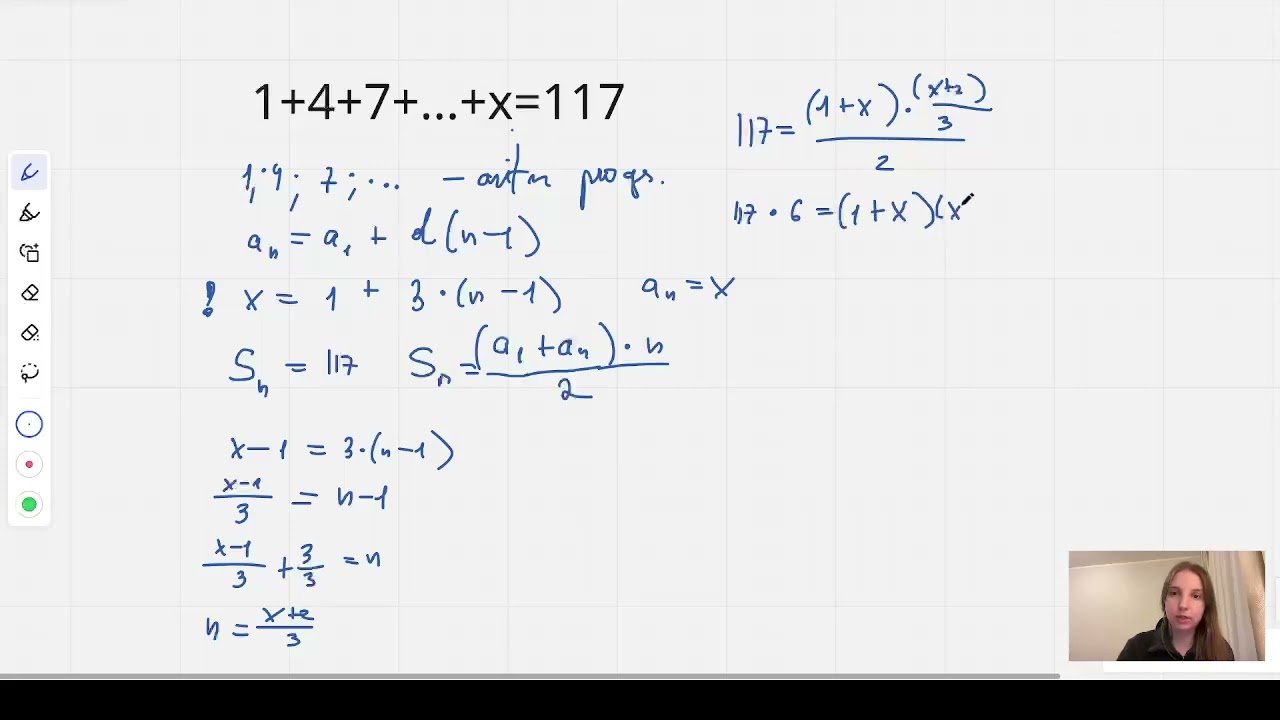 1+4+7+...+x=117
1, 4; 7; ... – progr.
aₙ = a₁ + d(n-1)
! x = 1 + 3·(n-1) aₙ = x
Sₙ = 117 Sₙ = (a₁+aₙ)·n / 2
x-1 = 3·(n-1)
(x-1)/3 = n-1
(x-1)/3 + 3/3 = n
n = (x+2)/3
117 = ((1+x)·(x+2)/3) / 2
117·6 = (1+x)(x